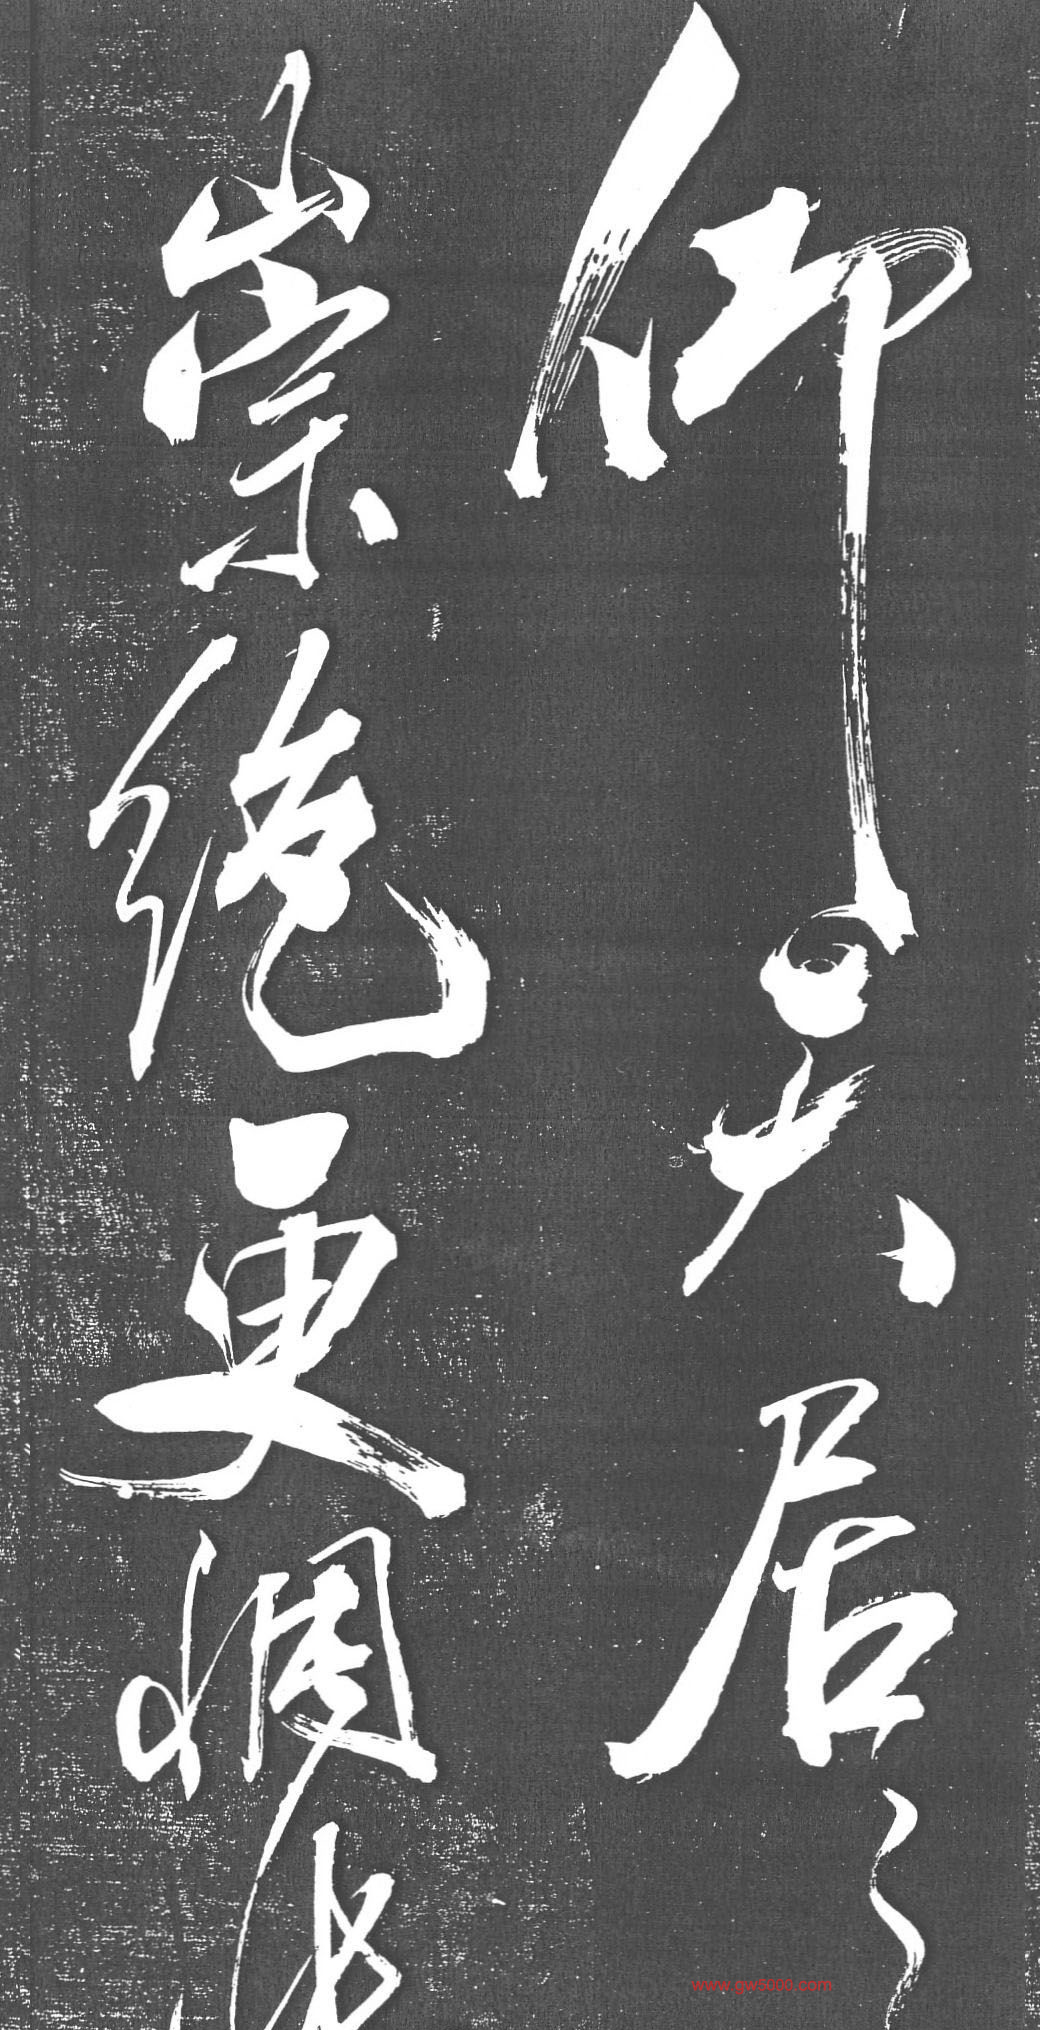 仰天居之
崇絕更惆悵
www.gw5000.com